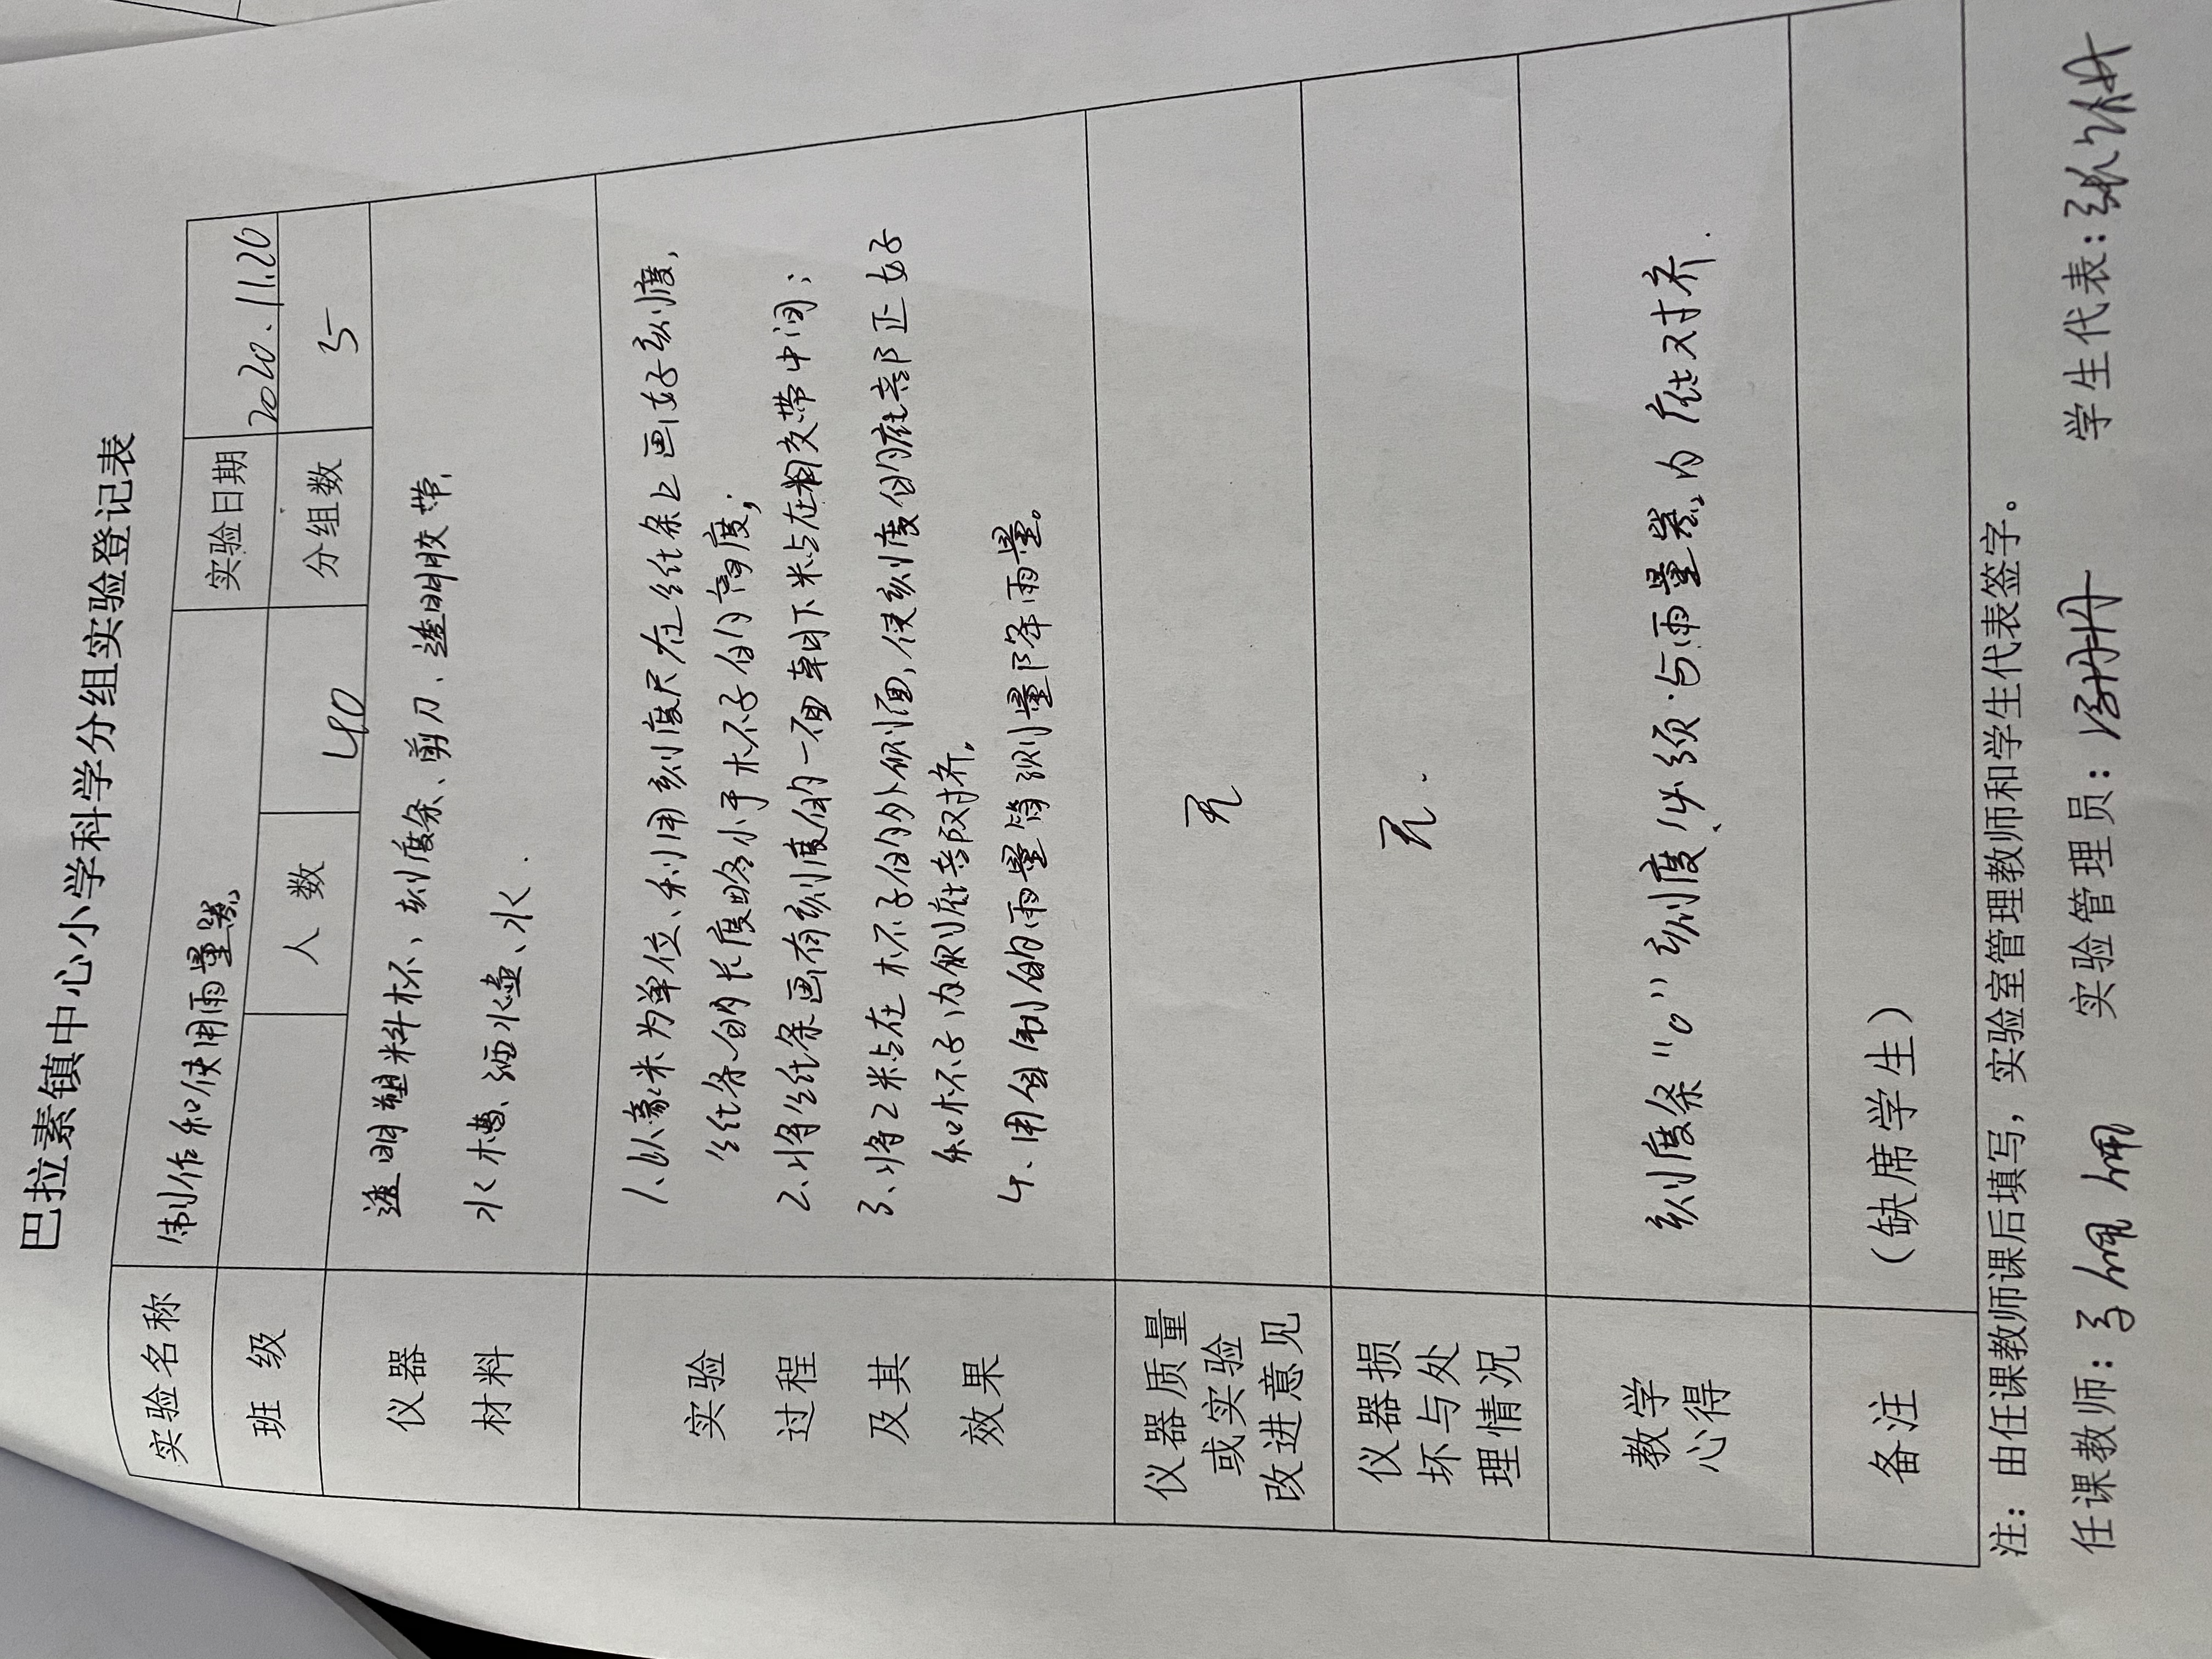 巴拉素镇中心小学科学分组实验登记表
实验名称 制作和使用雨量器 实验日期 2020.11.20
班 级 人 数 40 分组数 5
仪器 材料 透明塑料杯、刻度条、剪刀、透明胶带、
水槽、洒水壶、水.
实验 过程 及其 效果 1.以毫米为单位、利用刻度尺在纸条上画好刻度,
纸条的长度略小于杯子的高度;
2.将纸条画有刻度的一面朝下粘在胶带中间;
3、将它粘在杯子的外侧面,使刻度的底部正好
和杯子内侧底部对齐。
4、用自制的雨量筒测量降雨量。
仪器质量 或实验 改进意见 无
仪器损 坏与处 理情况 无.
教学 心得 刻度条“0”刻度必须与雨量器内底对齐.
备注 (缺席学生)
注：由任课教师课后填写，实验室管理教师和学生代表签字。
任课教师： 实验管理员： 学生代表：张